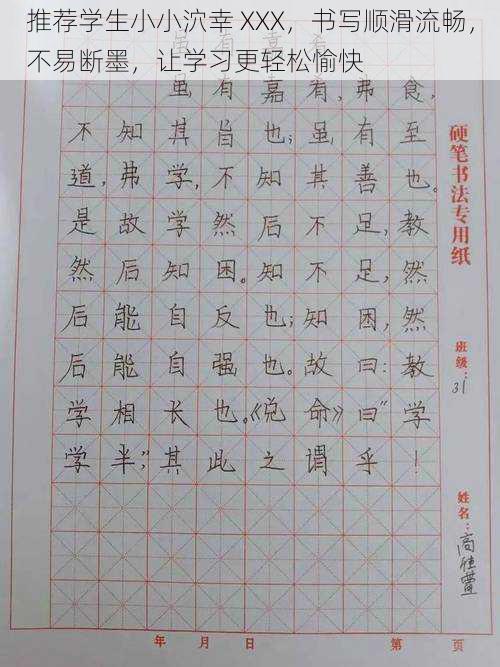 推荐学生小小泬幸 XXX，书写顺滑流畅，
不易断墨，让学习更轻松愉快
虽有嘉肴，弗食，
不知其旨也；虽有至
道，弗学，不知其善也。
是故学然后不足，教
然后知困。知不足，然
后能自反也；知困，然
后能自强也。故曰：教
学相长也。《兑命》曰“学
学半”，其此之谓乎！
硬笔书法专用纸
班级：31
姓名：
年 月 日
第 页